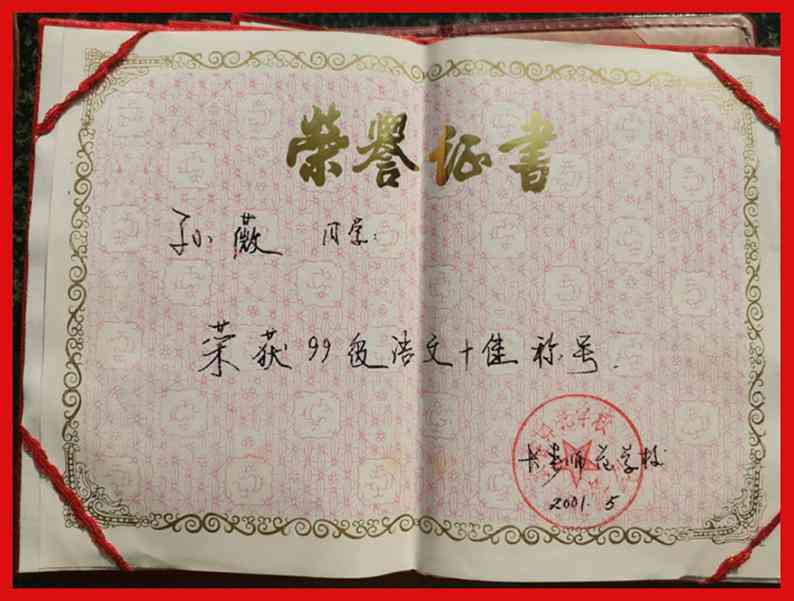 榮譽证書
孙薇 同学:
荣获99级语文十佳称号.
师范学校
2001.5